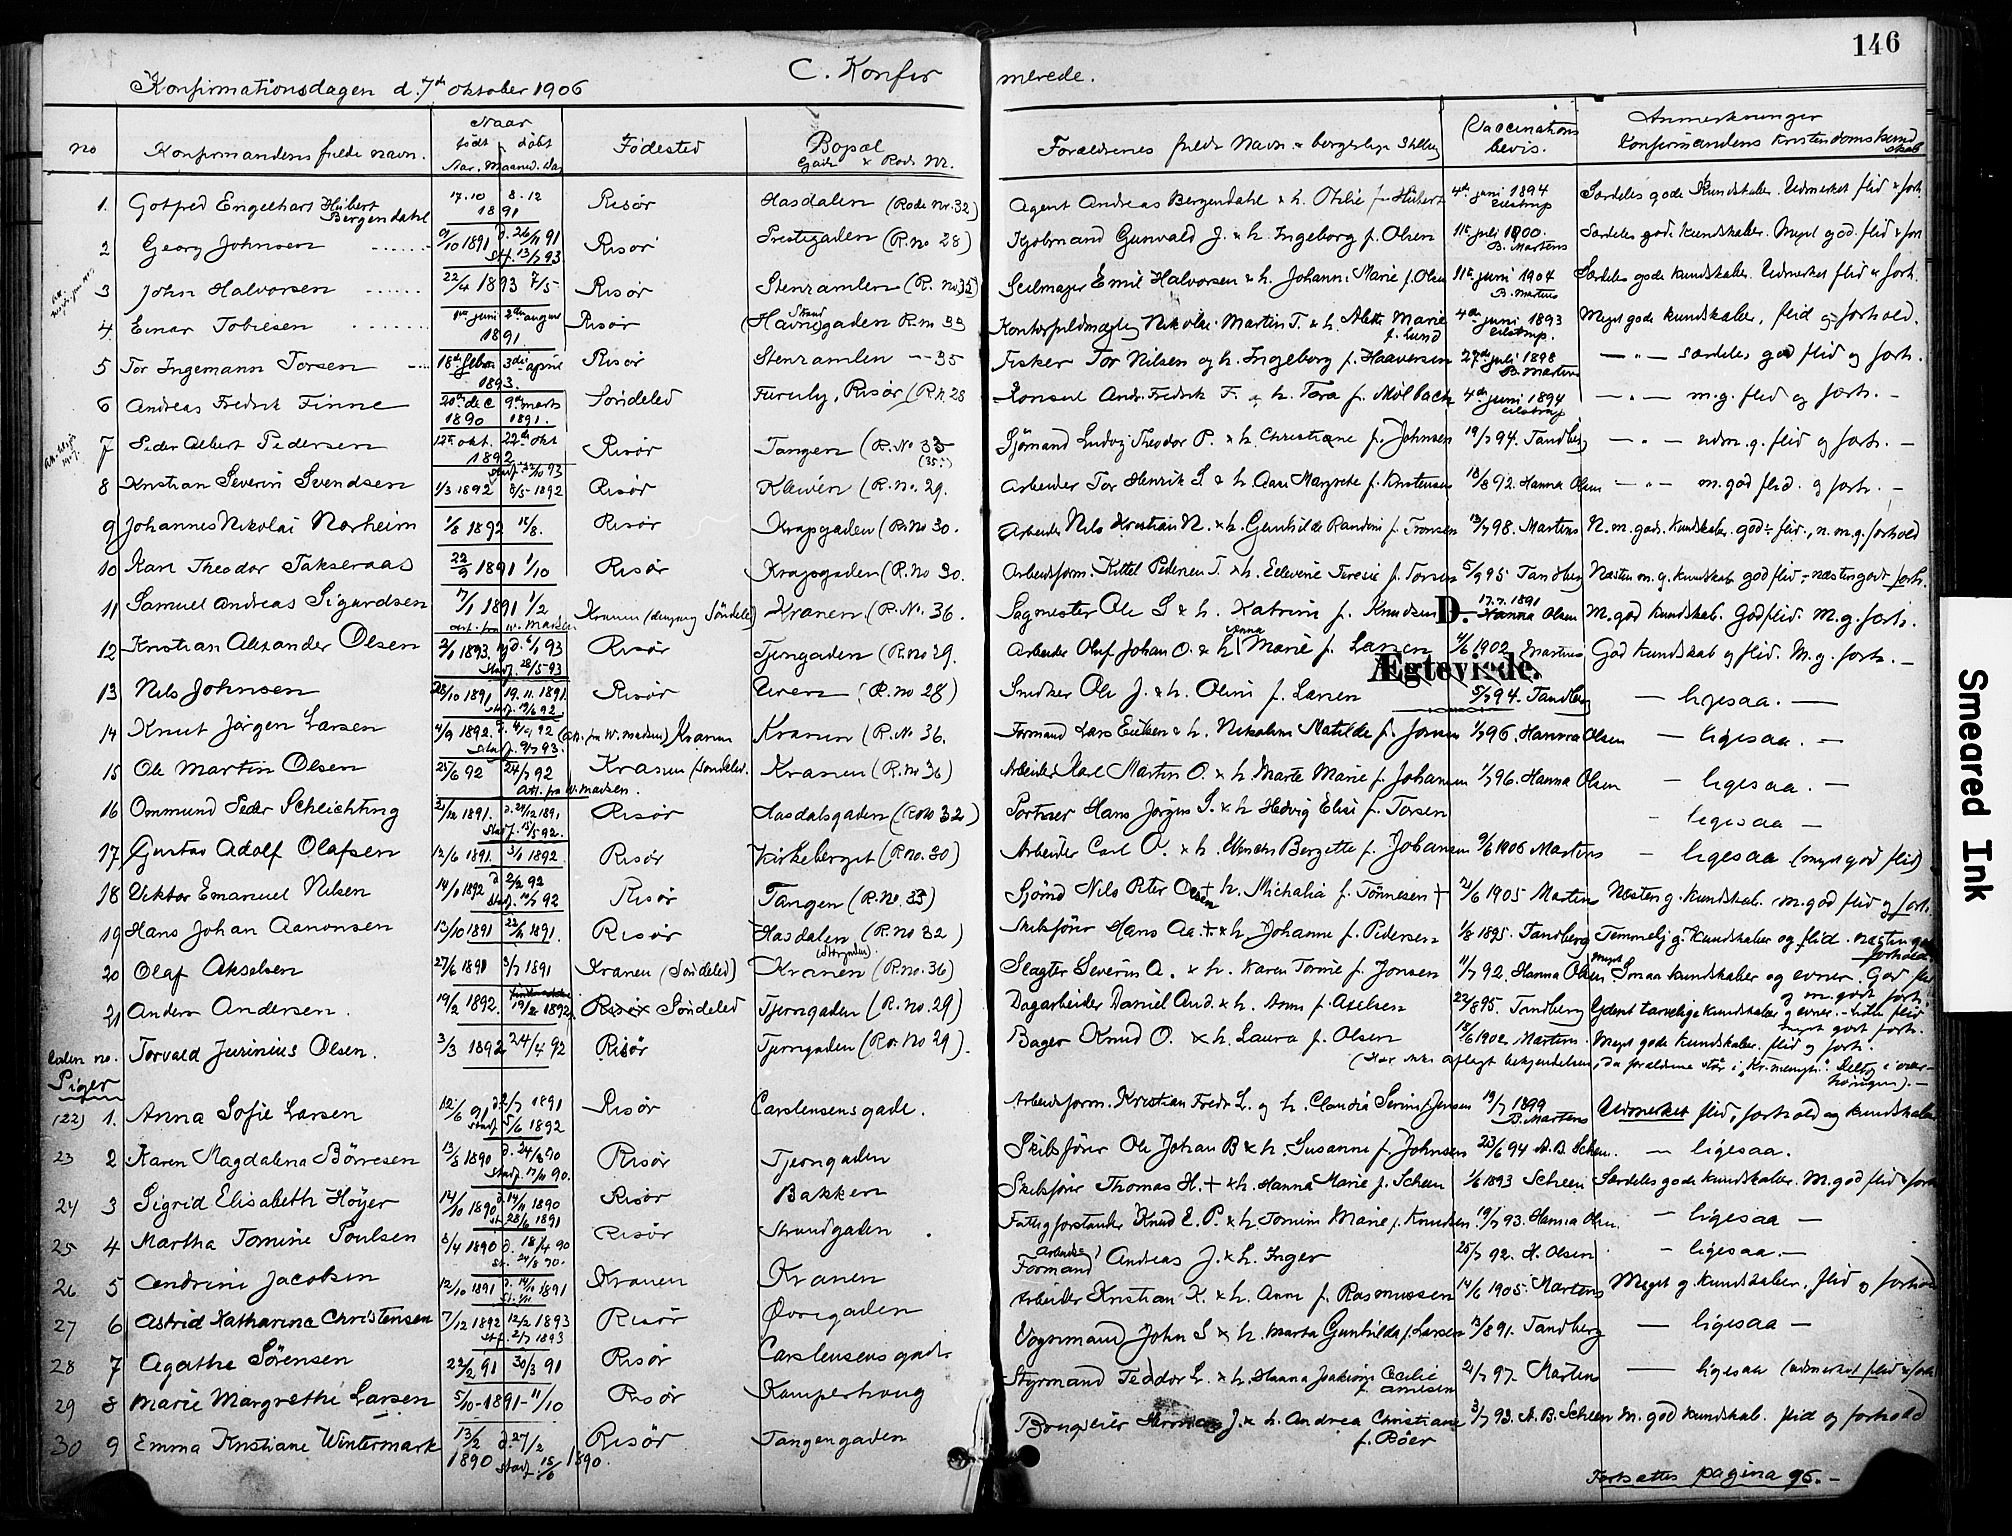 146
C. Konfirmerede.
Konfirmationsdagen d. 7de oktober 1906
no Konfirmandens fulde navn. Naar født døbt Aar. Maaned. Da Fødested Bopæl Gade & Rode Nr. Forældrenes fulde Navn & borgerlige Stilling Vaccinations bevis. Anmerkninger Konfirmandens Kristendomskundskab
1. Gotfred Engelhart Hübert Bergendahl 17.10 8.12 1891 Risør Hasdalen (Rode nr. 32) Agent Andreas Bergendahl & h. Othilie f. Hübert 4de juni 1894 Eilstrup Særdeles gode Kundskaber. Udmerket flid & forh.
2 Georg Johnsen 1891 d. 26/11 91 Stf. 13/7 93 Risør Prestegaden (R. no 28) Gunvald J. & h. Ingeborg f. Olsen 11te juli 1900. B. Martens Særdeles gode kundskaber. Meget god flid & forh
3 John Halvorsen 22/4 1893 7/5 Risør Stenramlen (R. no 35) Seilmager Emil Halvorsen & h. Johanne Marie f. Olsen 11te juni 1904 B. Martens Særdeles gode kundskaber. Udmerket flid & forh.
4 Einar Tobiesen 1ste juni 2den august 1891. Risør (Havne)gaden Strand R. no 33 Kontorfuldmægtig Nikolai Martin T. & h. Alette Marie f. Lund 4de juni 1893 Eilstrup. Meget gode kundskaber, flid og forhold.
5 Tor Ingemann Torsen 18de febr. 3die april 1893. Risør Stenramlen — 35 Fisker Tor Nilsen og h. Ingeborg f. Haaversen 27de juli 1898 B. Martens — " — særdeles god flid og forh.
6 Andreas Fredrik Finne 20de dec 9de marts 1890 1891. Søndeled Furuly, Risør (R. 28 Konsul Andr. Fredrik F. & h. Tora f. Mølbach 4de juni 1894 Eilstrup — " — m. g. flid og forh. —
7 Peder Albert Pedersen 12te okt. 22de okt 1892 Stadf. 22/10 93 Risør Tangen (R. No 33 (35.) Sjømand Ludvig Theodor P. & h. Christiane f. Johnsen 19/7 94. Tandberg — " — udm. g. flid og forh. —
8 Kristian Severin Svendsen 1/3 1892 8/5 1892 Risør Kleven (R. no. 29. Arbeider Tor Henrik S & h. Aase Margrete f. Kristensen 18/8 92. Hanna Olsen — " — m. god flid. og forh. —
9 Johannes Nikolai Norheim 1/8 1892 18/8. Risør Kragsgaden (R. no 30. Arbeider Nils Kristian N. & h. Gunhilde Randine f. Tronsen 13/7 98. Martens N. m. gode kundskaber. god flid, n. m. g. forhold
10 Karl Theodor Takseraas 22/9 1891 1/10 Risør Kragsgaden (R. no 30. Arbeidsform. Kittel Pedersen T. & h. Ellevine Teresie f. Torsen 5/9 95 Tandberg Næsten m. g. kundskab god flid, næsten godt forh.
11 Samuel Andreas Sigurdsen 17/1 1891 1/2 att. fra W. Madsen Kranen (dengang Søndeled) Kranen (R. No. 36. Sagmester Ole S & h. Katrine f. Knudsen D. 17.7. 1891 Hanna Olsen M. god kundskab. God flid. M. g. forh.
12 Kristian Alexander Olsen 2/1 1893 d. 6/1 93 Stadf. 28/5 93 Risør Tjerngaden (R. no 29. Arbeider Oluf Johan O. & h. Anna Marie f. Larsen 4/6 1902 Martens God kundskab og flid. M. g. forh. —
Ægteviede.
13 Nils Johnsen 28/10 1891 19. 11. 1891 Stadf. 19/6 92 Risør Uren (R. no 28) Smedker Ole J. & h. Oline f. Larsen 5/7 94. Tandberg — ligesaa. —
14 Knut Jørgen Larsen 4/9 1892. d. 4/9 92 Stadf. 9/7 93. (att. fra W. Madsen) Kranen Kranen (R. No 36. Formand Lars Eriksen & h. Nikoline Matilde f. Jonsen 1/7 96. Hanna Olsen — ligesaa. —
15 Ole Martin Olsen 25/6 92 24/7 92 Att. fra W. Madsen. Kranen (Søndeled. Kranen (R. no 36) Arbeider Karl Martin O. & h. Marte Marie f. Johansen 1/7 96. Hanna Olsen — ligesaa. —
16 Ommund Peder Schlichting 2/12 1891. d. 24/12 1891 Stadf. 15/5 92. Risør Hasdalsgaden (R no 32) Portner Hans Jørgen S. & h. Hedvig Elise f. Torsen — ligesaa —
17 Gustav Adolf Olafsen 12/6 1891. 3/1 1892. Risør Kirkeberget (R no. 30) Arbeider Carl O. & h. Wenche Bergette f. Johansen 9/6 1906 Martens — ligesaa (meget god flid)
18 Viktor Emanuel Nilsen 14/1 1892 d 2/2 92 Stadf. 10/7 92 Risør Tangen (R. no. 33) Sjømd Nils Peter Olsen & h. Michalia f. Tønnesen † 21/6 1905 Martens Næsten g. kundskab. m. god flid og forh.
19 Hans Johan Aanonsen 13/10 1891 22/11 1891. Risør Hasdalen (R. no 32) Skibsfører Hans Aa. † & h. Johanne f. Pedersen 1/8 1895. Tandberg Temmelig g. kundskaber og flid. næsten godt forhold
20 Olaf Akselsen 27/6 1891 3/7 1891 Kranen (Søndeled) Kranen (R. no. 36) Slagter Severin A. & h. Karen Tomine f. Jonsen 11/7 92. Hanna Olsen. Meget smaa kundskaber og evner. God flid og m. godt forh.
21 Anders Andersen. 19/2 1892. 19/2 1892. Risør Søndeled Tjerngaden (R. no. 29) Dagarbeider Daniel And. & h. Anne f. Axelsen 22/8 95. Tandberg Yderst tarvelige kundskaber og evner. Liden flid meget godt forh.
Uden no. Torvald Jusinius Olsen. 3/3 1892 24/4 92 Risør Tjerngaden (Ro. No 29). Bager Knud O. & h. Laura f. Olsen 18/6 1902. Martens. Meget gode kundskaber. flid og forh.
(Har ikke aflagt bekjendelsen, da forældrene står i „Kr. menigh". Deltog i overhøringen). —
Piger
(22) 1. Anna Sofie Larsen 12/6 91 d 2/7 1891 Stadf. 5/6 1892 Risør Carstensensgade. Arbeidsform. Kristian Fredr. L. og h. Claudia Serine f. Jensen 19/7 1899 B. Martens Udmerket flid, forhold og kundskaber
23 2 Karen Magdalena Børresen 13/8 1890 d. 24/8 90 Stadf. 17/11 90. Risør Tjerngaden Skibsfører Ole Johan B & h. Susanne f. Johnsen 23/6 94 A. B. Scheen. — ligesaa.
24 3 Sigrid Elisabeth Høyer 14/10 1890 d. 14/11 1890 st. 28/6 1891 Risør Bakken Skibsfører Thomas H. † & h. Hanna Marie f. Scheen 1/6 1893 Scheen Særdeles gode kundskaber. M. god flid & forh
25 4 Martha Tomine Poulsen 3/4 1890 d. 18/4 90 St. 24/8 90. Risør Strandgaden. Fattigforstander Knud E. P. & h. Tomine Marie f. Knudsen 19/7 93. Hanna Olsen. — ligesaa —
26 5 Andrine Jacobsen 12/10 1891 d. 14/10 1891 Kranen Kranen Arbeider Formand Andreas J. & h. Inger 25/7 92. H. Olsen — ligesaa. —
27 6 Astrid Katharina Christensen 7/12 1892 12/2 1893 Stf. 2/7 1893 Risør Øvregaden Arbeider Kristian K. & h. Anne f. Rasmussen 14/6 1905. Martens Meget g. kundskaber, flid og forhold
28 7 Agathe Sørensen 22/2 91 30/3 91 Risør Carstensensgade Vognmand John S & h. Marta Gunhilda f. Larsen 13/8 91. Tandberg — ligesaa —
29 8 Marie Margrethe Larsen 5/10 - 1891 - 11/10 Risør Kamperhaug Styrmand Teodor L. & h. Hanna Joakime Cecilie f. Arnesen 21/7 97. Martens — ligesaa (udmerket flid & forh
30 9 Emma Kristiane Wintermark 13/2 1890 d. 27/2 Stadf 15/6 1890. Risør Tangengaden J. & h. Andrea Christiane f. Bøer 3/7 93. A. B. Scheen M. god kundskab. flid og forhold
Fortsættes pagina 96. —
Smeared Ink